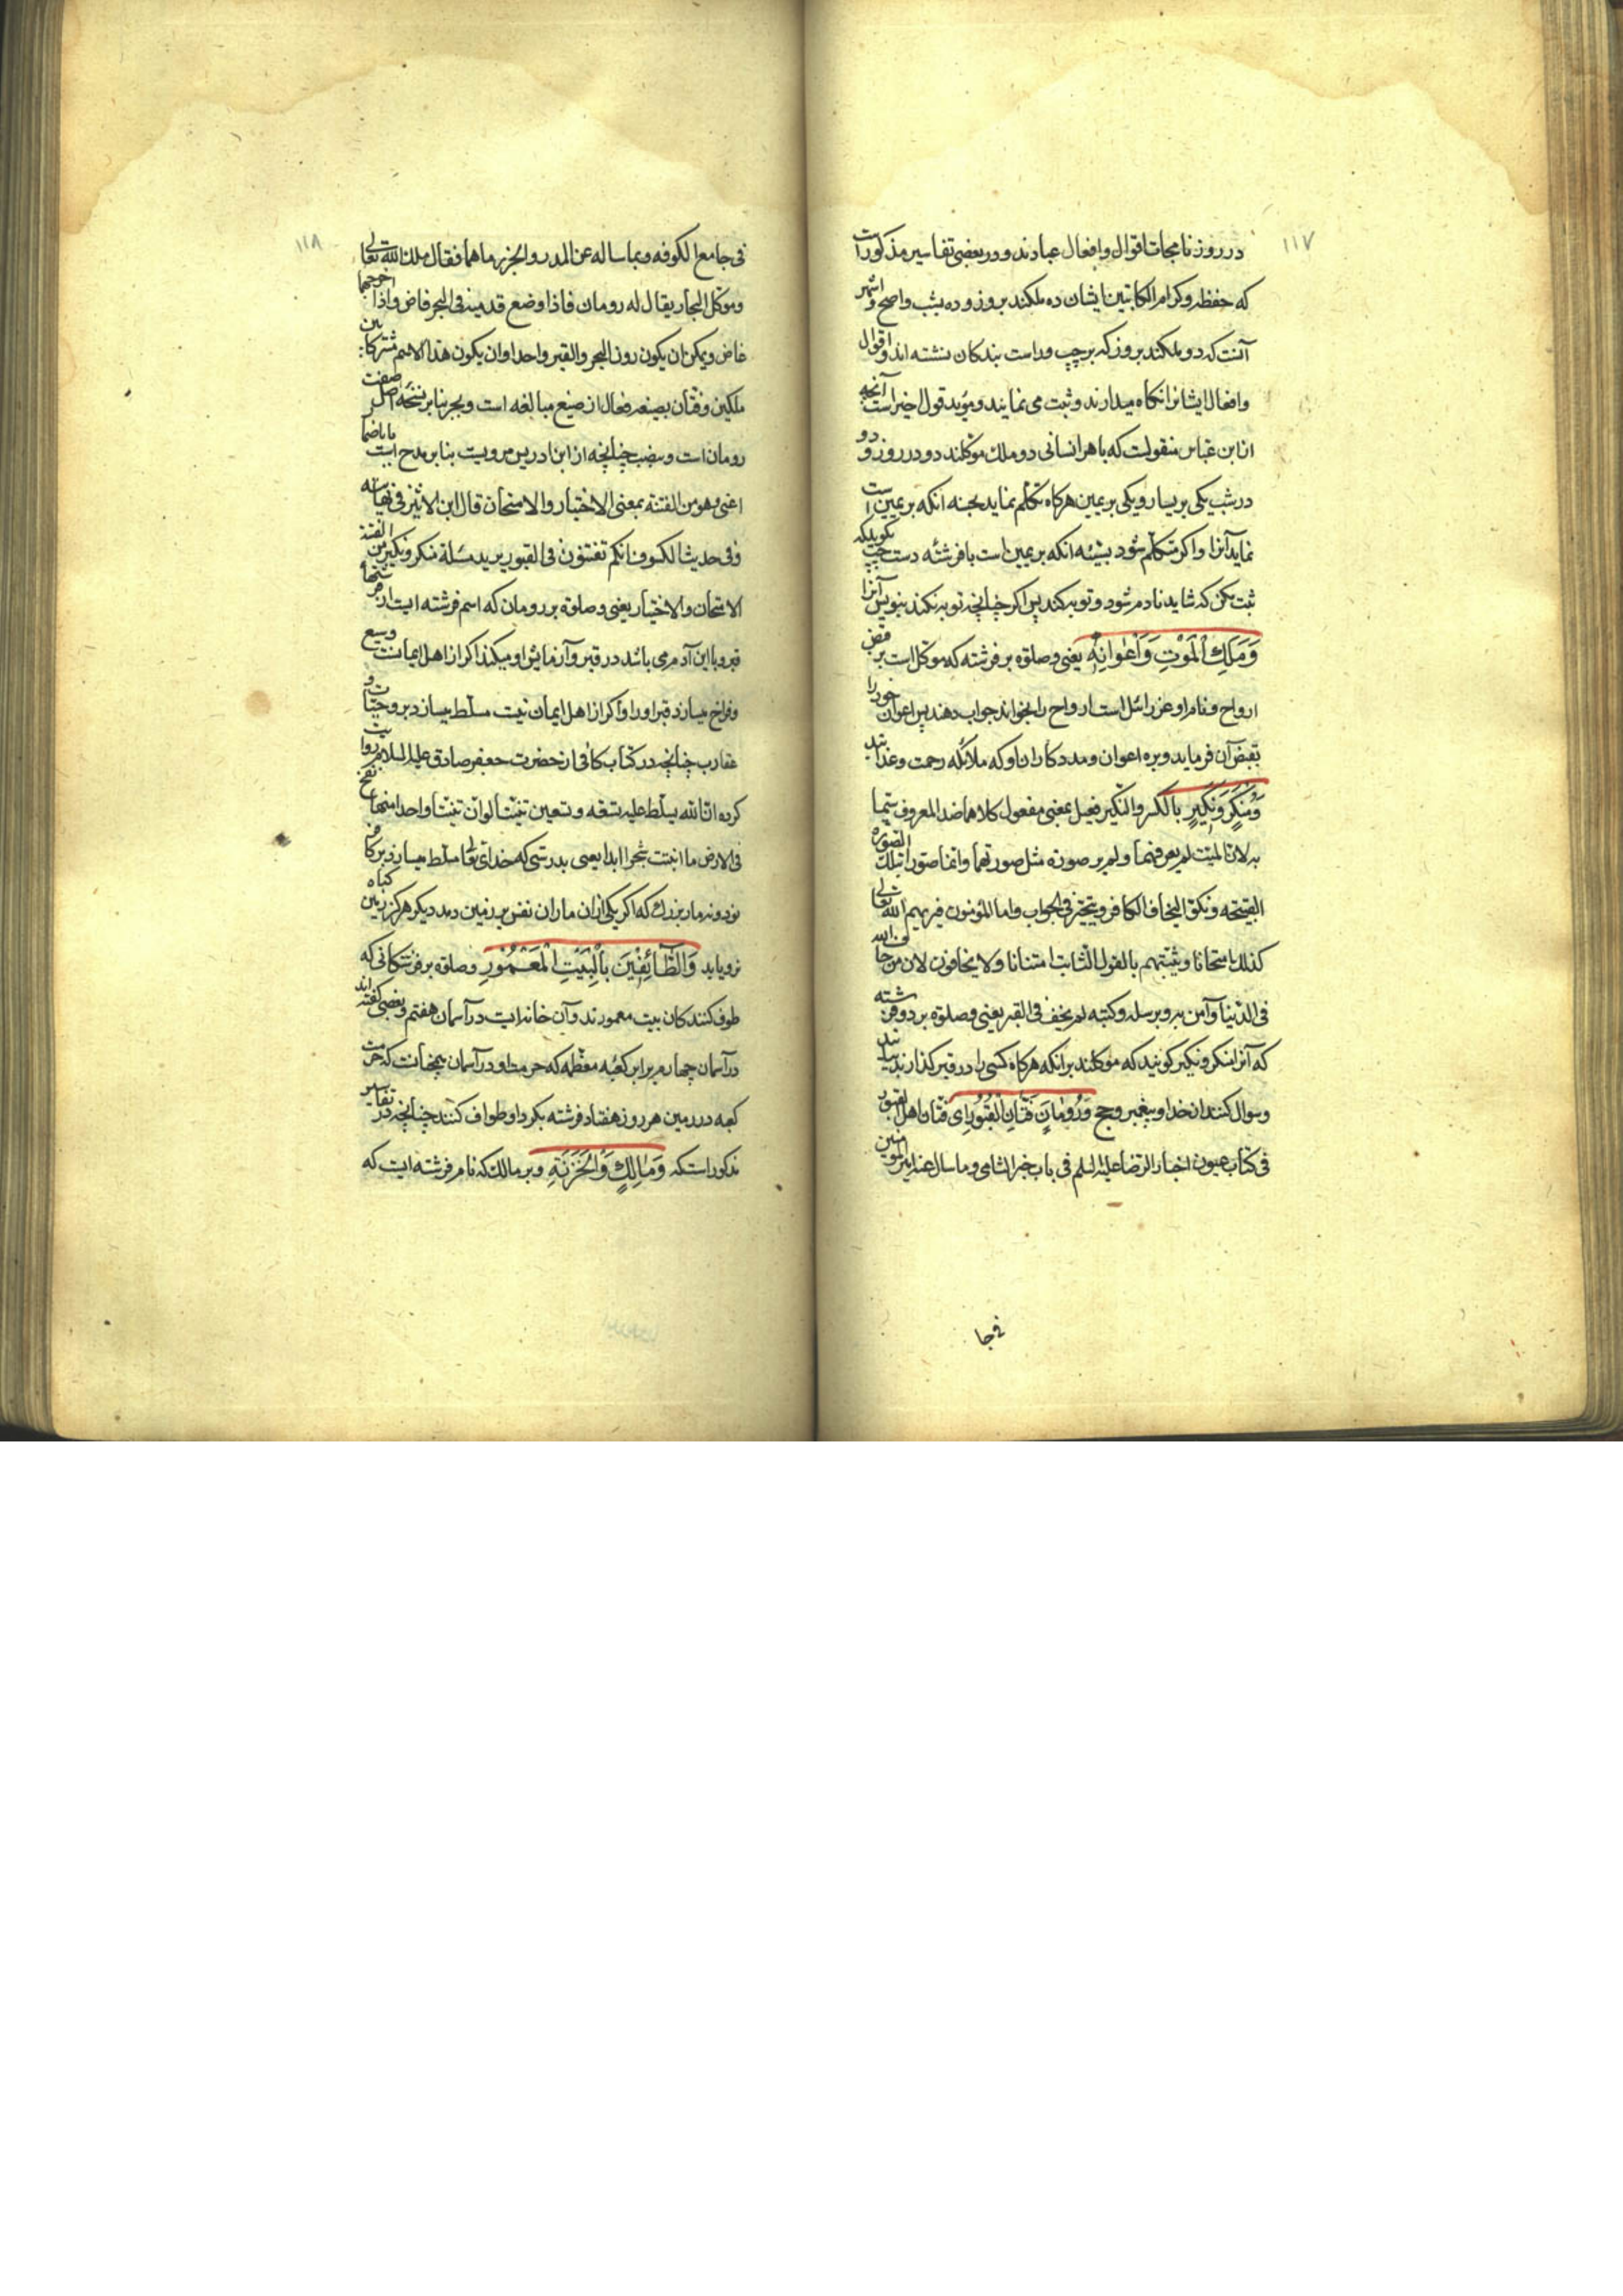 ۱۱۷
در روزنامجات اقوال و افعال عبادند و در بعضی تفاسیر مذکور است
که حفظه و کرام الکاتبین ایشان ده ملکند بروز و ده بشب و اصح و اشهر
آنست که دو ملکند بروز که بر چپ و راست بندکان نشسته اند و اقوال
و افعال ایشانرا نکاه میدارند و ثبت می نمایند و مؤید قول اخیر است آنچه
از ابن عباس منقولست که با هر انسانی دو ملک موکلند دو در روز و دو
در شب یکی بر یسار و یکی بر یمین هرکاه تکلم نماید بحسنه انکه بر یمین است
نماید آنرا و اکر متکلم شود بسیئه انکه بر یمین است با فرشته دست چپ کوید که
ثبت مکن که شاید نادم شود و توبه کند پس اکر چنانچه توبه نکند بنویس آنرا
وَمَلَكِ الْمَوْتِ وَأَعْوانِهِ یعنی و صلوة بر فرشته که موکل است بر قبض
ارواح و نام او عزرائیل است ارواح را بخواند جواب دهند پس اعوان خود را
بقبض آن فرماید و بره اعوان و مددکاران او که ملائکه رحمت و عذابند
وَمُنْكَرٍ وَنَكِيرٍ بالکسر والنکیر فعیل بمعنی مفعول کلاهما ضد المعروف سمیا
به لان المیت لم یعرفهما و لم یر صورة مثل صورتهما وانما صورا بتلک الصورة
القبیحة و نکرا لیخاف الکافر و یتحیز فی الجواب واما المؤمنون فیریهم الله تعالی
کذلک امتحانا و یثبتهم بالقول الثابت امتنانا ولا یخافون لان من خاف الله
فی الدنیا و آمن به و برسله و کتبه لم یخف فی القبر یعنی و صلوة بر دو فرشته
که آنرا منکر و نکیر کویند که موکلند برانکه هرکاه کسی را در قبر کذارند بیایند
و سوال کنند از خدا و پیغمبر و حج وَرُومَانَ فَتَّانِ الْقُبُورِ ای فتان اهل القبور
فی کتاب عیون اخبار الرضا علیه السلم فی باب خبر الشامی و ما سال عنه امیر المؤمنین
فی جا
۱۱۸
فی جامع الکوفه و مما ساله عن المد و الجزر ما هما فقال ملک الله تعالی
و موکل البحار یقال له رومان فاذا وضع قدمیه فی البحر فاض واذا اخرجهما
غاض و یمکن ان یکون رون البحر والقبر واحدا وان یکون هذا الاسم مشترکا بین
ملکین و فتان بصیغه فعال از صیغ مبالغه است و بجر بنا بر نسخه اصل صفت
رومان است و بنصب چنانچه از ابن ادریس مرویست بنا بر مدح است باضمار
اعنی و هو من الفتنة بمعنی الاختبار والامتحان قال ابن الاثیر فی نهایته
و فی حدیث الکسوف انکم تفتنون فی القبور یرید مسئلة منکر و نکیر من الفتنة
الامتحان والاختبار یعنی و صلوة بر رومان که اسم فرشته ایست از
قبر و با ابن آدم می باشد در قبر و آزمایش او میکند اکر از اهل ایمانست وسیع
و فراخ میسازد قبر او را و اکر از اهل ایمان نیست مسلط میسازد برو حیات و
عقارب چنانچه در کتاب کافی از حضرت جعفر صادق علیه السلام روایت
کرده ان الله یسلط علیه تسعة و تسعین تنینا لو ان تنینا واحدا منها نفخ
فی الارض ما انبتت شجرا ابدا یعنی بدرستی که خدای تعالی مسلط میسازد بر کافر
نود و نه مار بزرك که اکر یکی ازان ماران نفس بر زمین دمد دیکر هرکز زمین کیاه
نرویاند وَالطَّائِفِينَ بِالْبَيْتِ الْمَعْمُورِ و صلوة بر فرشتکانی که
طوف کنندکان بیت معمورند و آن خانه ایست در آسمان هفتم و بعضی کفته اند
در آسمان چهارم برابر کعبه معظمه که حرمت او در آسمان همچنانست که حرمت
کعبه در زمین هر روز هفتاد فرشته بکرد او طواف کنند چنانچه در تفاسیر
مذکور است که وَمَالِكٍ وَالْخَزَنَةِ و بر مالک که نام فرشته ایست که